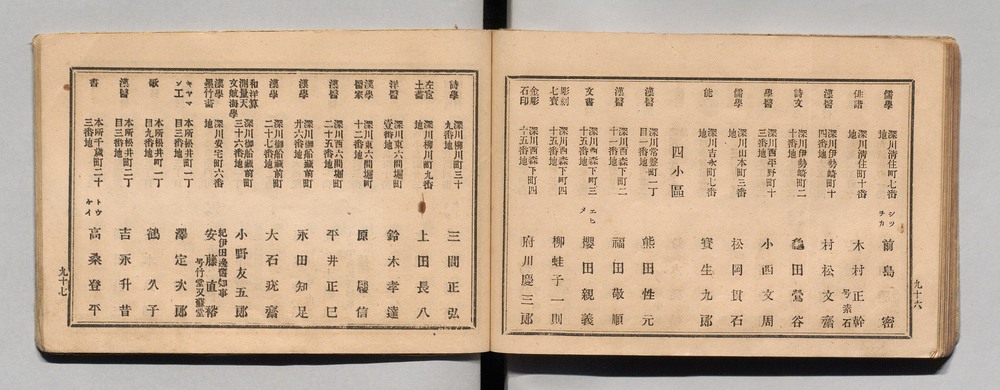 儒學 深川清住町七番地 シツチカ 前島密
俳諧 深川清住町十番地 木村正幹 号素石
漢醫 深川伊勢崎町十四番地 村松文齋
詩文 深川伊勢崎町二十番地 龜田鶯谷
學醫 深川西平野町十三番地 小西文周
儒學 深川山本町三番地 松岡貫石
能 深川吉永町七番地 寳生九郎
四小區
漢醫 深川常盤町一丁目一番地 熊田性元
漢醫 深川西森下町二十一番地 福田敬順
文書 深川西森下町三十五番地 櫻田親義
彫刻七寳 深川西森下町四十五番地 柳蛙子一則
金彫石印 深川西森下町四十五番地 府川慶三郎
九十六
詩學 深川柳川町三十九番地 三間正弘
左官土藝 深川柳川町九番地 上田長八
洋醫 深川東六間堀町壹番地 鈴木孝達
漢學醫家 深川東六間堀町十二番地 原信
漢醫 深川西六間堀町二十五番地 平井正巳
漢學 深川御船藏前町廿六番地 永田知足
漢學 深川御船藏前町二十七番地 大石珧齋
和洋算測量天文航海學 深川御船藏前町三十六番地 小野友五郎
漢學墨竹畵 深川安宅町六番地 紀伊田邊舊知事 安藤直裕 号竹堂又蘇堂
キヤマン工 本所松井町一丁目三番地 澤定次郎
歌 本所松井町一丁目九番地 鶴久子
漢醫 本所松井町二丁目三番地 吉永升昔
書 本所千歳町二十三番地 トウケイ 高桑登平
九十七